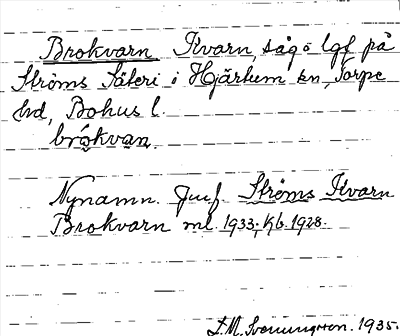 Brokvarn Kvarn, såg o lgf på
Ströms Säteri i Hjärtum sn, Torpe
hd, Bohus l.
brókvan.
Nynamn. Jmf. Ströms Kvarn
Brokvarn ml. 1933; Kb. 1928.
1935.